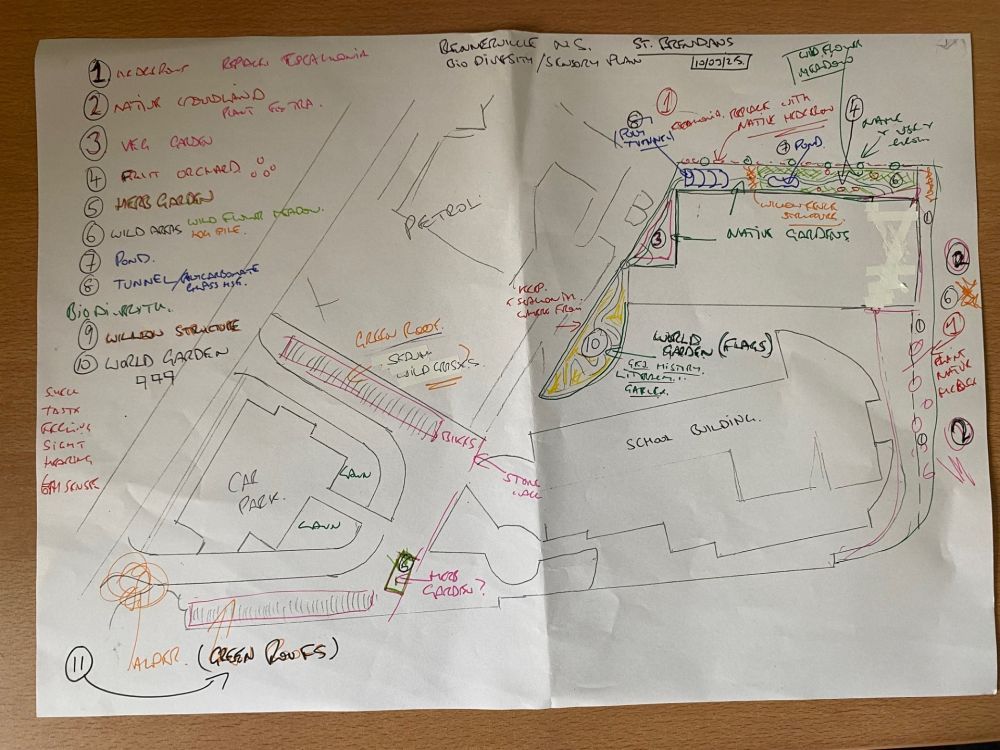 BENNERVILLE N.S. ST. BRENDANS
BIO DIVERSITY/SENSORY PLAN 10/09/25.
1 HEDGEROW REPLACE ESCALLONIA
2 NATIVE WOODLAND
PLANT EXTRA.
3 VEG GARDEN
4 FRUIT ORCHARD
5 HERB GARDEN
6 WILD AREAS WILD FLOWER MEADOW.
LOG PILE.
7 POND.
8 TUNNEL/POLYCARBONATE
GLASS HSE.
BIODIVERSITY.
9 WILLOW STRUCTURE
10 WORLD GARDEN
SMELL
TASTE
FEELING
SIGHT
HEARING
6TH SENSE
WILD FLOWER
MEADOW
1
ESCALLONIA, REPLACE WITH
NATIVE HEDGEROW
8
POLY
TUNNEL
7 POND.
4
NATIVE
WILLOW FENCE
STRUCTURE.
NATIVE GARDENS
3
6
PETROL
KEEP
ESCALLONIA
10
WORLD
GARDEN (FLAGS)
HISTORY
GREEN ROOFS.
SEDUM
WILD GRASSES
BIKES
STONE
WALL
SCHOOL BUILDING.
CAR
PARK.
LAWN
LAWN
2
6
1
PLANT
NATIVE
HEDGE
2
HERB
GARDEN?
ALDER. (GREEN ROOFS)
11